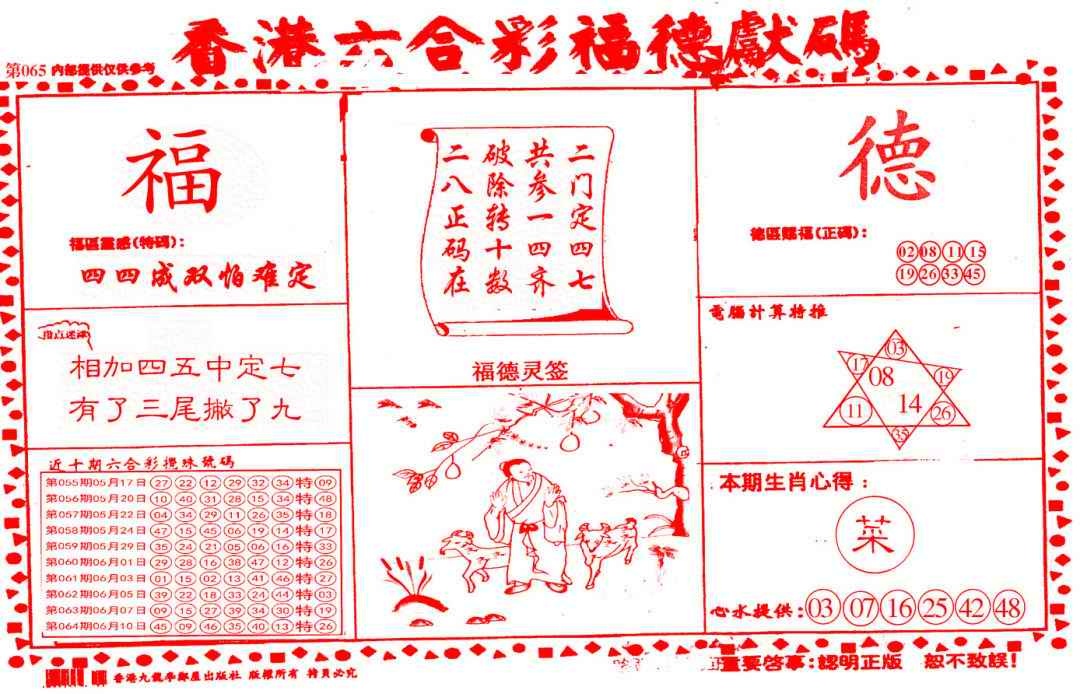 香港六合彩福德獻碼
第065 内部提供仅供参考
福
福區靈感(特碼):
四四成双怕难定
指点迷津
相加四五中定七
有了三尾撇了九
近十期六合彩攪珠號碼
第055期05月17日 27 22 12 29 32 34 特 09
第056期05月20日 10 40 31 28 15 34 特 48
第057期05月22日 04 34 29 11 26 35 特 18
第058期05月24日 47 15 45 06 19 14 特 17
第059期05月29日 35 24 21 05 06 16 特 33
第060期06月01日 29 28 16 38 47 12 特 26
第061期06月03日 01 15 02 13 41 46 特 27
第062期06月05日 39 22 18 33 24 44 特 03
第063期06月07日 09 15 27 39 34 30 特 19
第064期06月10日 45 09 46 35 40 13 特 26
二门定四七
共参一四齐
破除转十数
二八正码在
福德灵签
德
德區賜福(正碼):
02 08 11 15
19 26 33 45
電腦計算特推
03
17
08
19
11
14
26
35
本期生肖心得:
菜
心水提供: 03 07 16 25 42 48
香港九龍學鄰屋出版社 版權所有 特員必究
重要啓事:認明正版 恕不致誤!